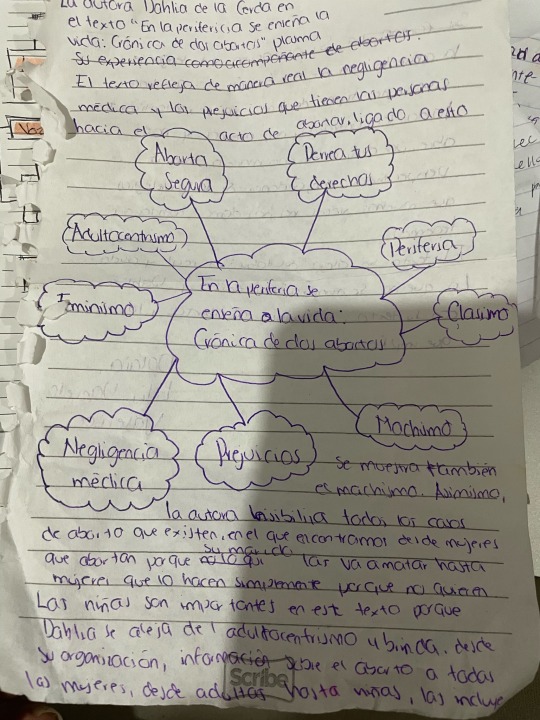 La autora Dahlia de la Cerda en
el texto "En la periferia se enseña la
vida: Crónica de dos abortos" plasma
su experiencia como acompañante de abortos.
El texto refleja de manera real la negligencia
médica y los prejuicios que tienen las personas
hacia el acto de abortar, ligado a esto
Aborta
Segura
Derecatus
derechos
Adultocentrismo
Periferia
Feminimo
En la periferia se
enseña a la vida:
Crónica de dos abortos
Clasimo
Negligencia
médica
Prejuicios
Machimo
se muestra también
es machimo. Asimimo,
la autora visibiliza todos los casos
de aborto que existen, en el que encontramos desde mujeres
que abortan porque su marido las va a matar hasta
mujeres que lo hacen simplemente porque no quieren
Las niñas son importantes en este texto porque
Dahlia se aleja del adultocentrismo y brinda, desde
su organización, información sobre el aborto a todas
las mujeres, desde adultas hasta niñas, las incluye
Scribe